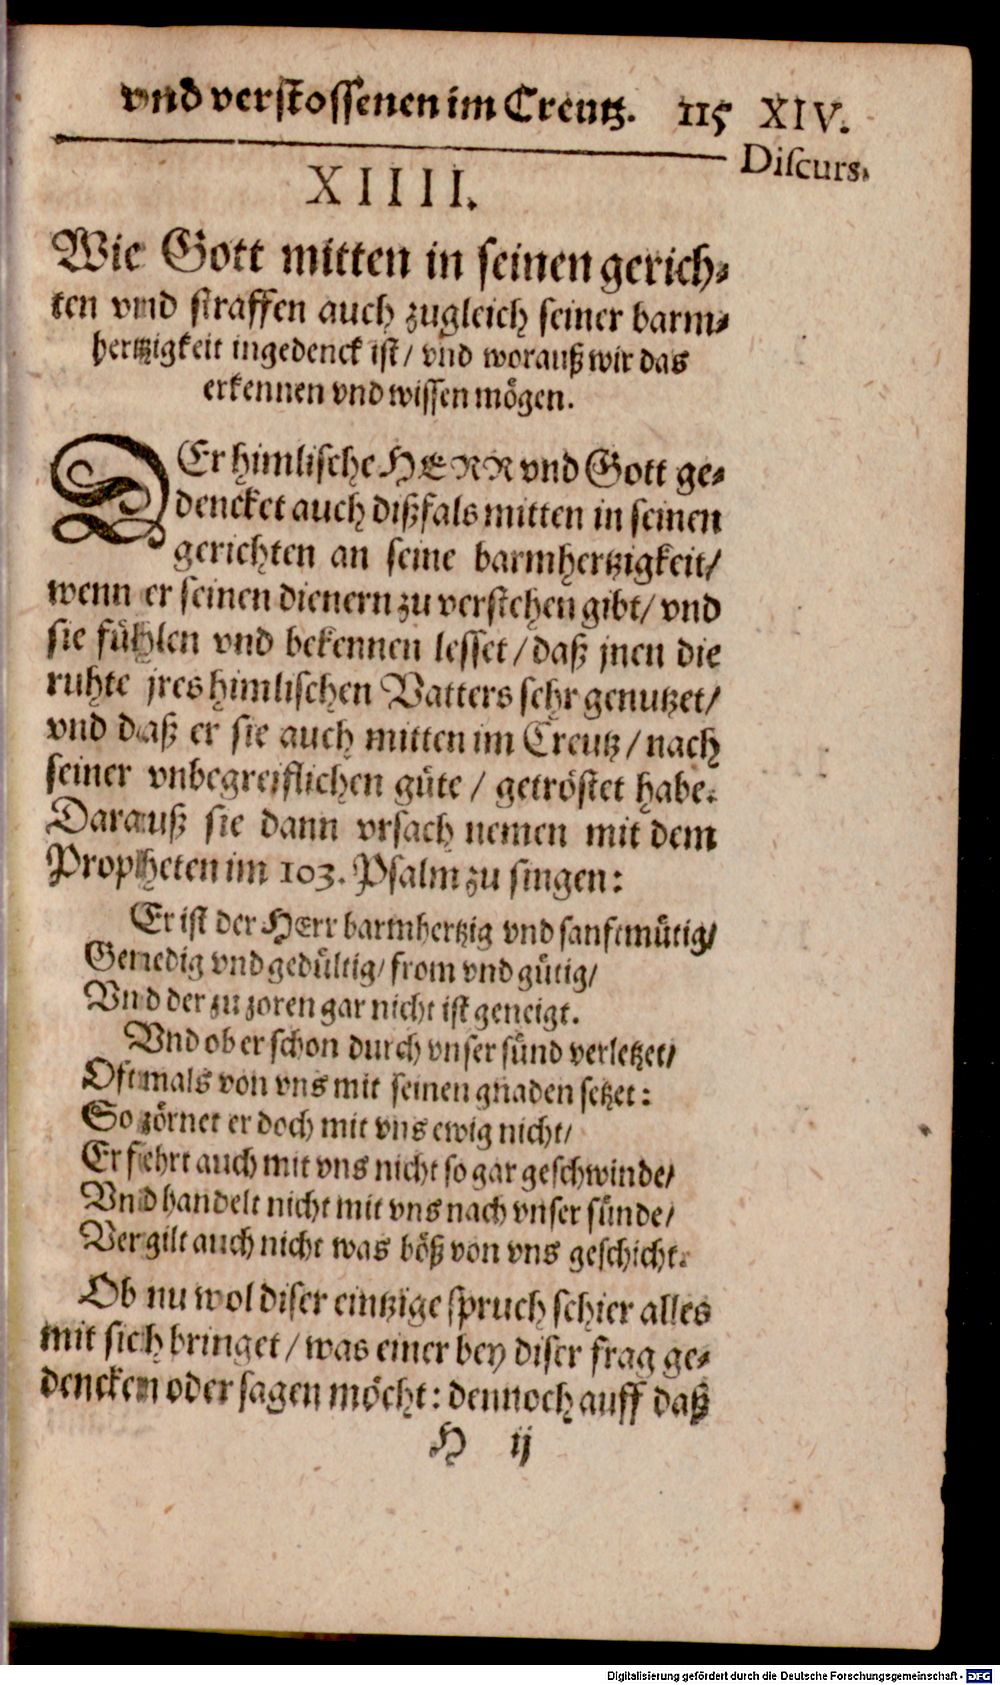 vnd verstossenen im Creutz. 115 XIV.
Discurs.
XIIII.
Wie Gott mitten in seinen gerich⸗
ten vnd straffen auch zugleich seiner barm⸗
hertzigkeit ingedenck ist/ vnd worauß wir das
erkennen vnd wissen mögen.
DEr himlische HERR vnd Gott ge⸗
dencket auch dißfals mitten in seinen
gerichten an seine barmhertzigkeit/
wenn er seinen dienern zu verstehen gibt/ vnd
sie fühlen vnd bekennen lesset/ daß jnen die
ruhte jres himlischen Vatters sehr genutzet/
vnd daß er sie auch mitten im Creutz/ nach
seiner vnbegreiflichen güte/ getröstet habe.
Darauß sie dann vrsach nemen mit dem
Propheten im 103. Psalm zu singen:
Er ist der HErr barmhertzig vnd sanftmütig/
Genedig vnd gedültig/ from vnd gütig/
Vnd der zu zoren gar nicht ist geneigt.
Vnd ob er schon durch vnser sünd verletzet/
Oftmals von vns mit seinen gnaden setzet:
So zörnet er doch mit vns ewig nicht/
Er fehrt auch mit vns nicht so gar geschwinde/
Vnd handelt nicht mit vns nach vnser sünde/
Vergilt auch nicht was böß von vns geschicht.
Ob nu wol diser eintzige spruch schier alles
mit sich bringet/ was einer bey diser frag ge⸗
dencken oder sagen möcht: dennoch auff daß
H ij
Digitalisierung gefördert durch die Deutsche Forschungsgemeinschaft - DFG